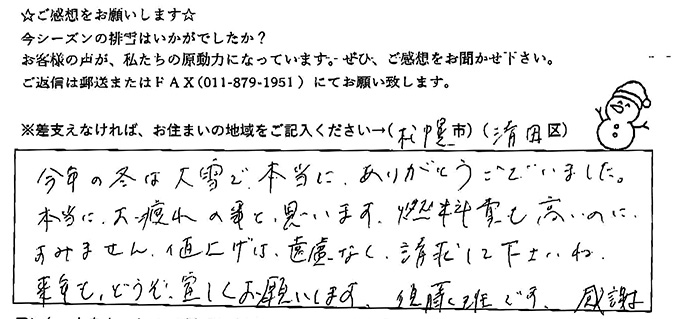 ☆ご感想をお願いします☆
今シーズンの排雪はいかがでしたか?
お客様の声が、私たちの原動力になっています。ぜひ、ご感想をお聞かせ下さい。
ご返信は郵送またはFAX(011-879-1951)にてお願い致します。
※差支えなければ、お住まいの地域をご記入ください→(札幌市)(清田区)
今年の冬は大雪で、本当に、ありがとうございました。
本当に、お疲れの事と、思います、燃料費も高いのに、
すみません、値上げは、遠慮なく、請求して下さいね、
来年も、どうぞ、宜しくお願いします、です、感謝